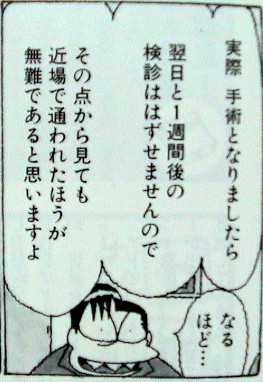 実際 手術となりましたら
翌日と1週間後の
検診ははずせませんので
その点から見ても
近場で通われたほうが
無難であると思いますよ
なる
ほど…